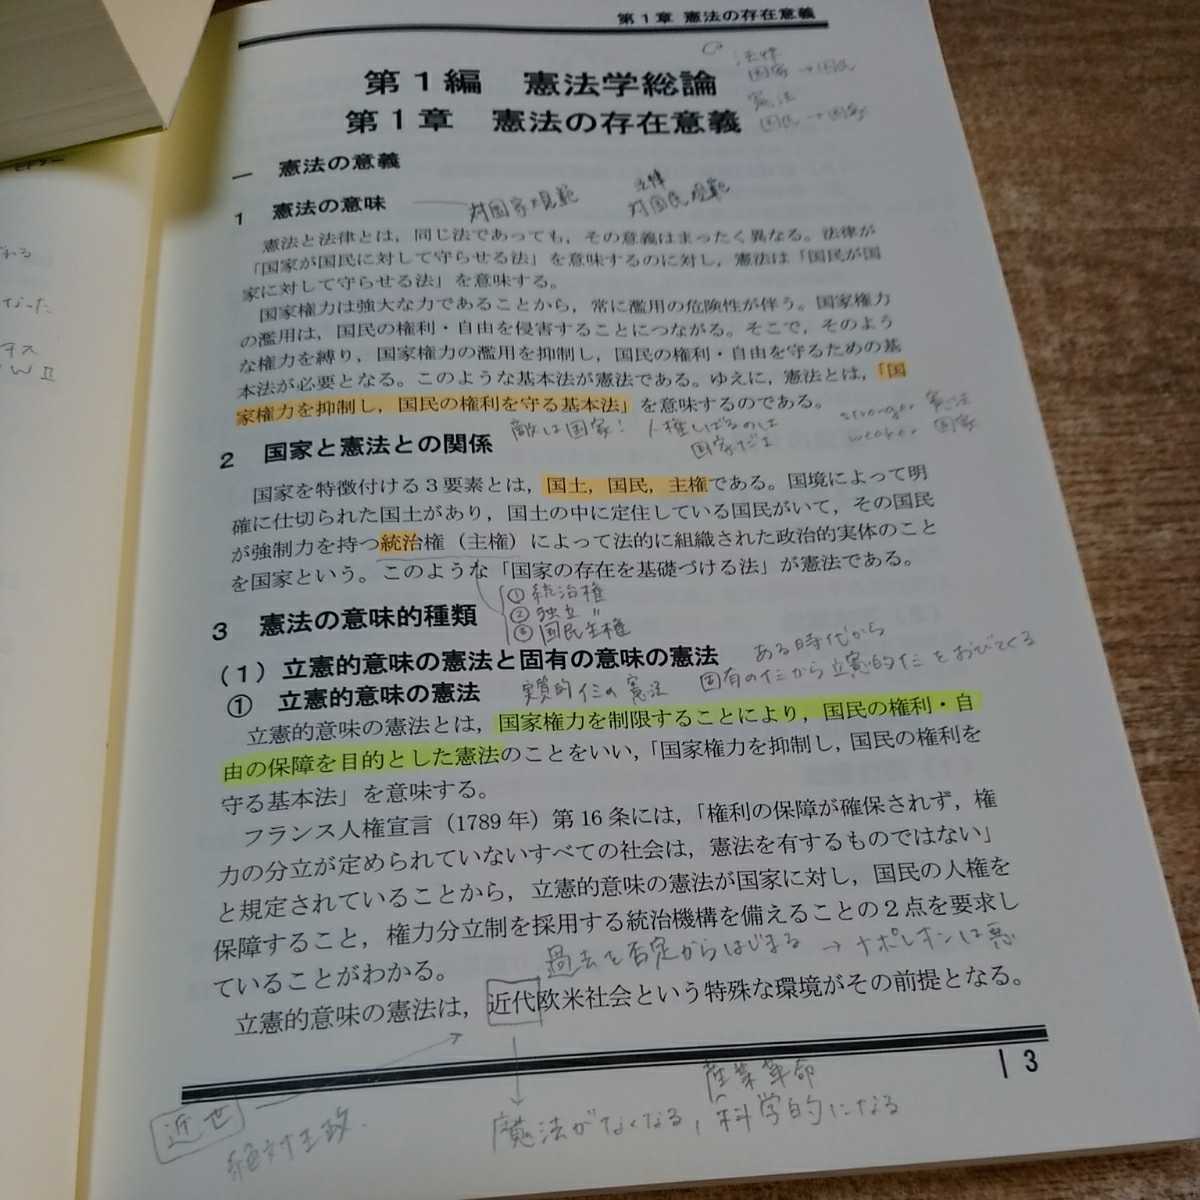 第1章 憲法の存在意義
法律
国家→国民
憲法
国民→国家
第1編 憲法学総論
第1章 憲法の存在意義
一 憲法の意義
1 憲法の意味
対国家規範
法律
対国民規範
憲法と法律とは，同じ法であっても，その意義はまったく異なる。法律が
「国家が国民に対して守らせる法」を意味するのに対し，憲法は「国民が国
家に対して守らせる法」を意味する。
国家権力は強大な力であることから，常に濫用の危険性が伴う。国家権力
の濫用は，国民の権利・自由を侵害することにつながる。そこで，そのよう
な権力を縛り，国家権力の濫用を抑制し，国民の権利・自由を守るための基
本法が必要となる。このような基本法が憲法である。ゆえに，憲法とは，「国
家権力を抑制し，国民の権利を守る基本法」を意味するのである。
敵は国家! 人権しばるのは
国家だよ
stronger 憲法
weaker 国家
2 国家と憲法との関係
国家を特徴付ける3要素とは，国土，国民，主権である。国境によって明
確に仕切られた国土があり，国土の中に定住している国民がいて，その国民
が強制力を持つ統治権（主権）によって法的に組織された政治的実体のこと
を国家という。このような「国家の存在を基礎づける法」が憲法である。
①統治権
②独立〃
③国民主権
3 憲法の意味的種類
（1）立憲的意味の憲法と固有の意味の憲法
ある時代から
固有のイミから立憲的イミをおびてくる
① 立憲的意味の憲法
実質的イミの憲法
立憲的意味の憲法とは，国家権力を制限することにより，国民の権利・自
由の保障を目的とした憲法のことをいい，「国家権力を抑制し，国民の権利を
守る基本法」を意味する。
フランス人権宣言（1789年）第16条には，「権利の保障が確保されず，権
力の分立が定められていないすべての社会は，憲法を有するものではない」
と規定されていることから，立憲的意味の憲法が国家に対し，国民の人権を
保障すること，権力分立制を採用する統治機構を備えることの2点を要求し
ていることがわかる。
過去を否定からはじまる → ナポレオンは悪
立憲的意味の憲法は，近代欧米社会という特殊な環境がその前提となる。
3
近世
絶対王政．
産業革命
魔法がなくなる，科学的になる